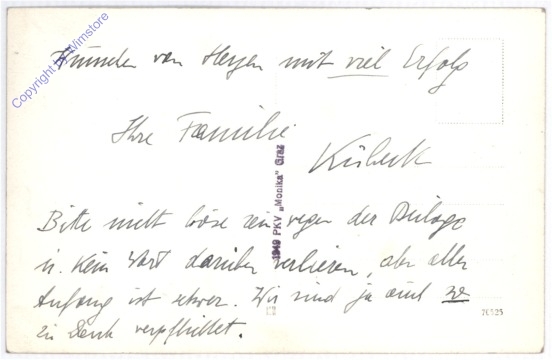 Copyright by Wimstore
Wünschen von Herzen mit viel Erfolg
Ihre Familie
Kübeck
1949 PKV „Monika“ Graz
Bitte nicht böse sein wegen der Beilage
u. kein Wort darüber verlieren, aber aller
Anfang ist schwer. Wir sind ja auch so
zu Dank verpflichtet.